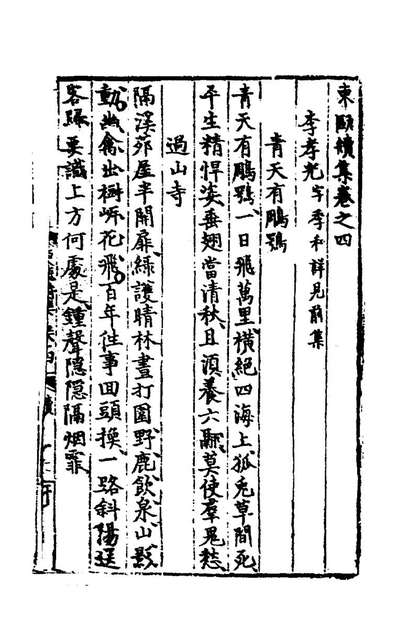 東甌續集卷之四
李孝光字季和詳見前集
青天有鵰鶚
青天有鵰鶚一日飛萬里橫絕四海上狐兔草間死
平生精悍姿垂翅當清秋且須養六翮莫使羣鳧愁
過山寺
隔溪茆屋半開扉綠護晴林晝打圍野鹿飲泉山影
動幽禽出樹岈花飛百年徃事回頭換一路斜陽送
客歸要識上方何處是鐘聲隱隱隔烟霏